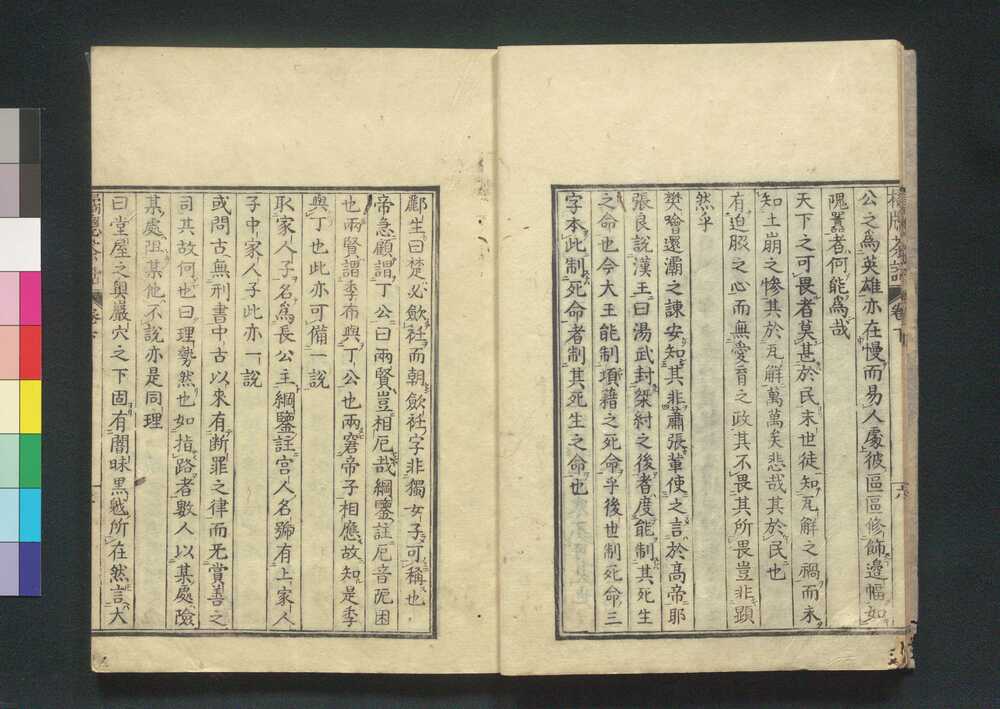 公之爲英雄亦在慢而易人處彼區區修飾邊幅如
隗囂者何能爲哉
天下之可畏者莫甚於民末世徒知瓦解之禍而未
知土崩之慘其於瓦解萬萬矣悲哉其於民也
有迫服之心而無愛育之政其不畏其所畏豈非顕
然乎
樊噲還灞之諫安知其非蕭張輩使之言於髙帝耶
張良說漢王曰湯武封桀紂之後者度能制其死生
之命也今大王能制項藉之死命乎後世制死命三
字本此制死命者制其死生之命也
卷下
六
酈生曰楚必歛衽而朝歛衽字非獨女子可稱也
帝急顧謂丁公曰兩賢豈相厄哉綱鑒註厄音阨困
也兩賢謂季布與丁公也兩窘帝子相應故知是季
與丁也此亦可備一說
取家人子名爲長公主綱鑒註宫人名號有上家人
子中家人子此亦一說
或問古無刑書中古以來有断罪之律而无賞善之
司其故何也曰理勢然也如指路者數人以某處險
某處阻某他不說亦是同理
曰堂屋之奥巖穴之下固有闇昧黒
所在然言大